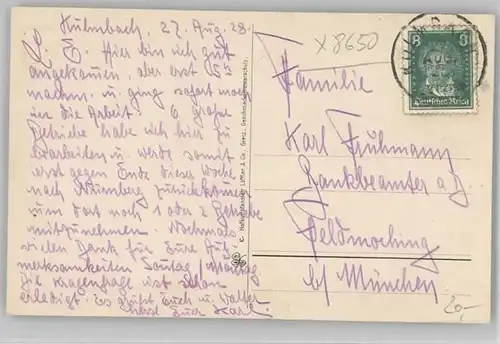 Kulmbach, 27. Aug. 28.
L. E. Hier bin ich gut
angekommen, aber erst 5 h
nachm. u. ging sofort noch
in die Arbeit. 6 große
Betriebe habe ich hier zu
bearbeiten u. werde somit
erst gegen Ende dieser Woche
nach Nürnberg zurückkommen
um dort noch 1 oder 2 Betriebe
mitzunehmen. Nochmals
vielen Dank für Eure Auf
merksamkeiten Sonntag / Montag
die Kragenfrage ist schon
erledigt. Es grüßt Euch u. Walter
Euer Karl.
X 8650
8 8
Deutsches Reich
Familie
Karl Fruhmann
Bankbeamter a. D.
Feldmoching
b/ München
20,-